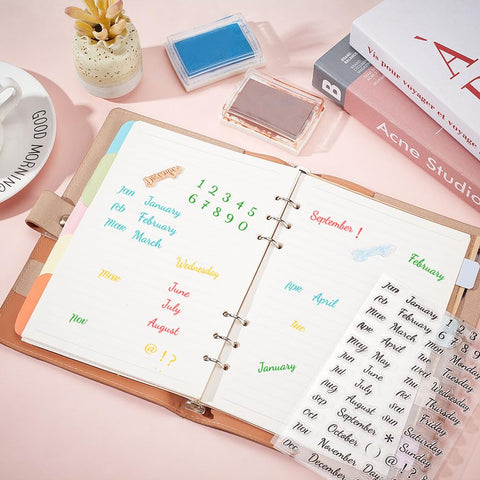 GOOD MORNING
À
Vie pour voyager et vous
B
Acne Studio
1 2 3 4 5
6 7 8 9 0
Jan January
Feb February
Mar March
Wednesday
June
July
August
Nov
@ ! ?
September !
February
Apr April
Tue
January
Jan January
Feb February
Mar March
Apr April
May May
Jun June
Jul July
Aug August
Sep September
Oct October
Nov November
Dec December
* ( ) @ ! ?
Day
Monday
Tuesday
Wednesday
Thursday
Friday
Saturday
Sunday